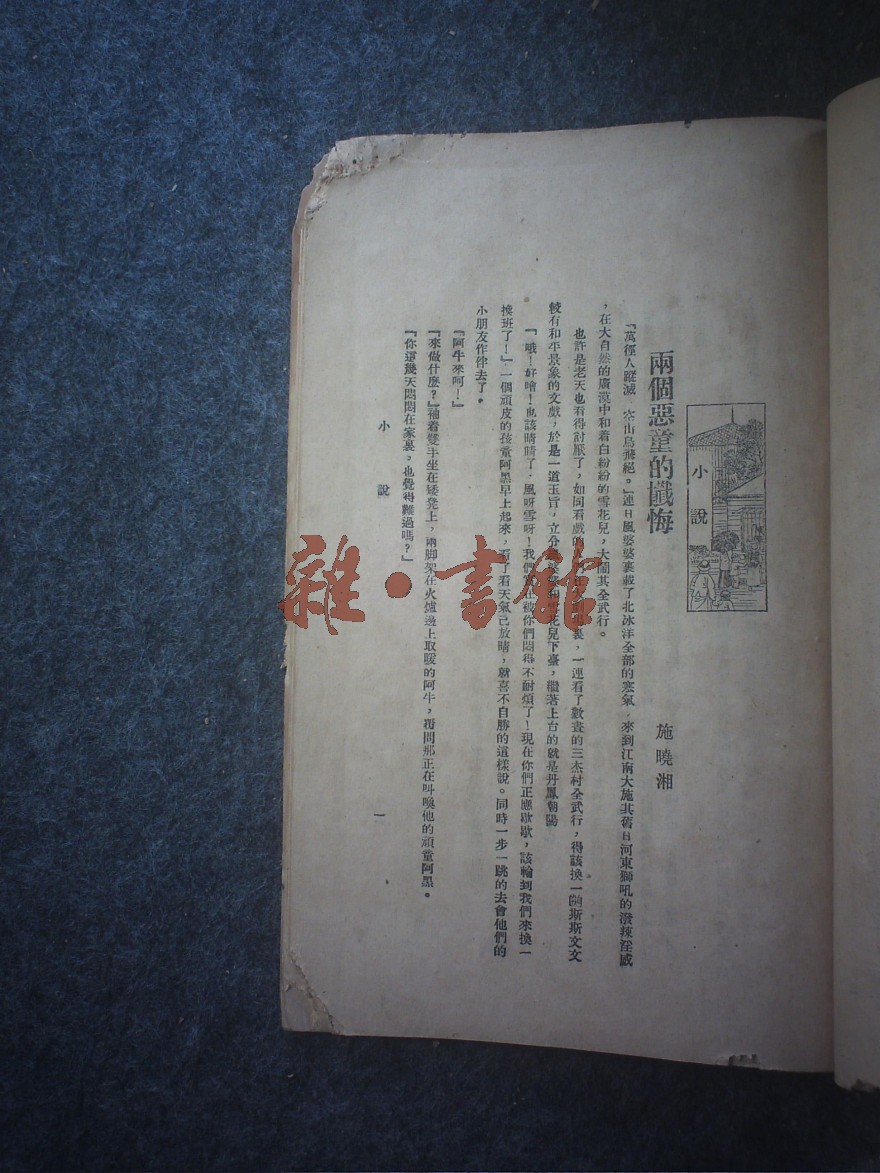 小說
兩個惡童的懺悔
施曉湘
『萬徑人蹤滅，空山鳥飛絕。』連日風婆婆裹載了北冰洋全部的寒氣，來到江南大施其舊日河東獅吼的潑辣淫威
，在大自然的廣漠中和着白紛紛的雪花兒，大鬧其全武行。
也許是老天也看得討厭了，如同看戲的，一連看了數晝的三杰村全武行，得該換一齣斯斯文文
較有和平景象的文戲，於是一道玉旨，立分雪花兒下臺，繼著上台的就是丹鳳朝陽
。
『哦！好嗆！也該晴晴了，風呀雪呀！我們被你們悶得不耐煩了！現在你們正應歇歇，該輪到我們來換一
換班了！』一個頑皮的孩童阿黑早上起來，看了看天氣已放晴，就喜不自勝的這樣說。同時一步一跳的去會他們的
小朋友作伴去了。
『阿牛來呵！』
『來做什麼？』袖着雙手坐在矮凳上，兩脚架在火爐邊上取暖的阿牛，覆問那正在叫喚他的頑童阿黑。
『你這幾天悶悶在家裏，也覺得難過嗎？』
小說
一
雜·書館